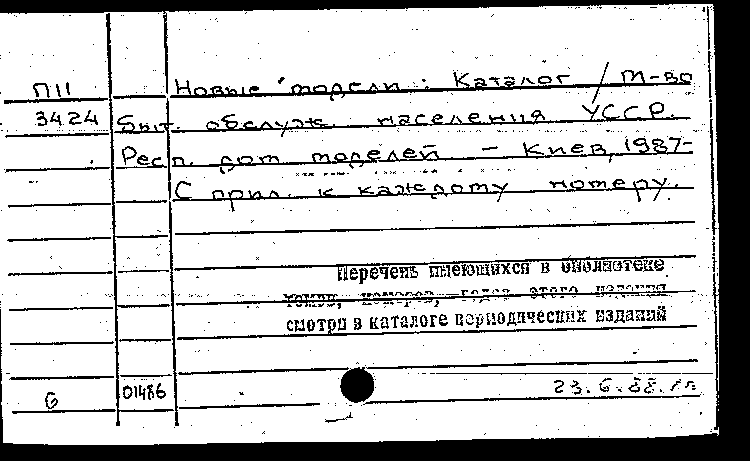 П11 Новые модели: Каталог / М-во
3424 Быт. обслуж. населения УССР.
Респ. дом моделей. – Киев, 1987-
С прил. к каждому номеру.
Перечень имеющихся в библиотеке
томов, номеров, годов этого издания
смотри в каталоге периодических изданий
6 01486 23.6.88.